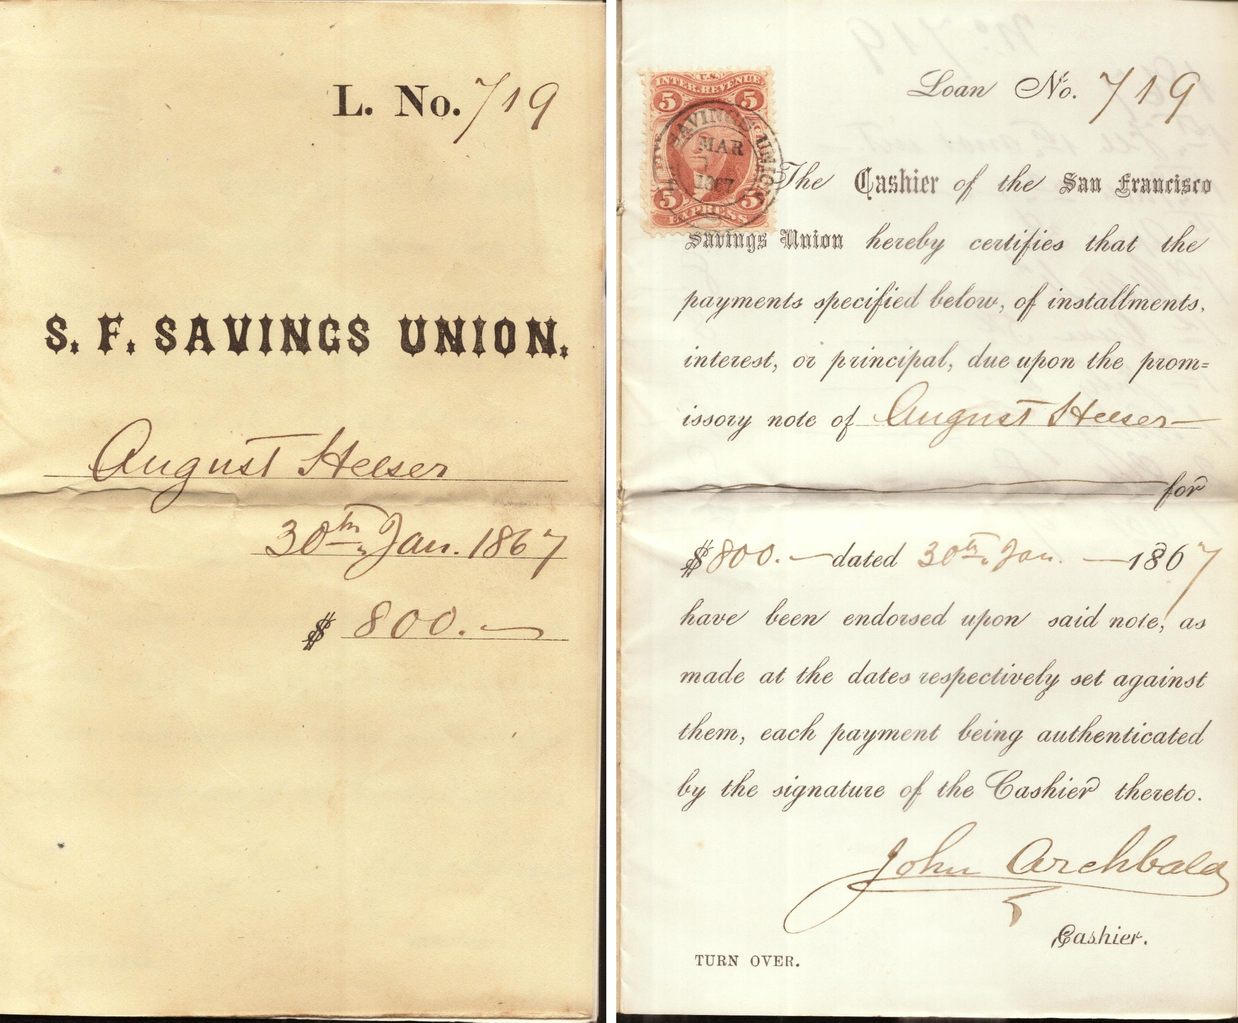 L. No. 719
S. F. SAVINGS UNION.
August Heeser
30th Jan. 1867
$ 800.
U.S.
INTER. REVENUE
5 5
FIVE
SAVINGS UNION
MAR
1867
5 5
EXPRESS
Loan No. 719
The Cashier of the San Francisco
Savings Union hereby certifies that the
payments specified below, of installments,
interest, or principal, due upon the prom=
issory note of August Heeser
for
$800. dated 30th Jan. 1867
have been endorsed upon said note, as
made at the dates respectively set against
them, each payment being authenticated
by the signature of the Cashier thereto.
John Archbald
Cashier.
TURN OVER.